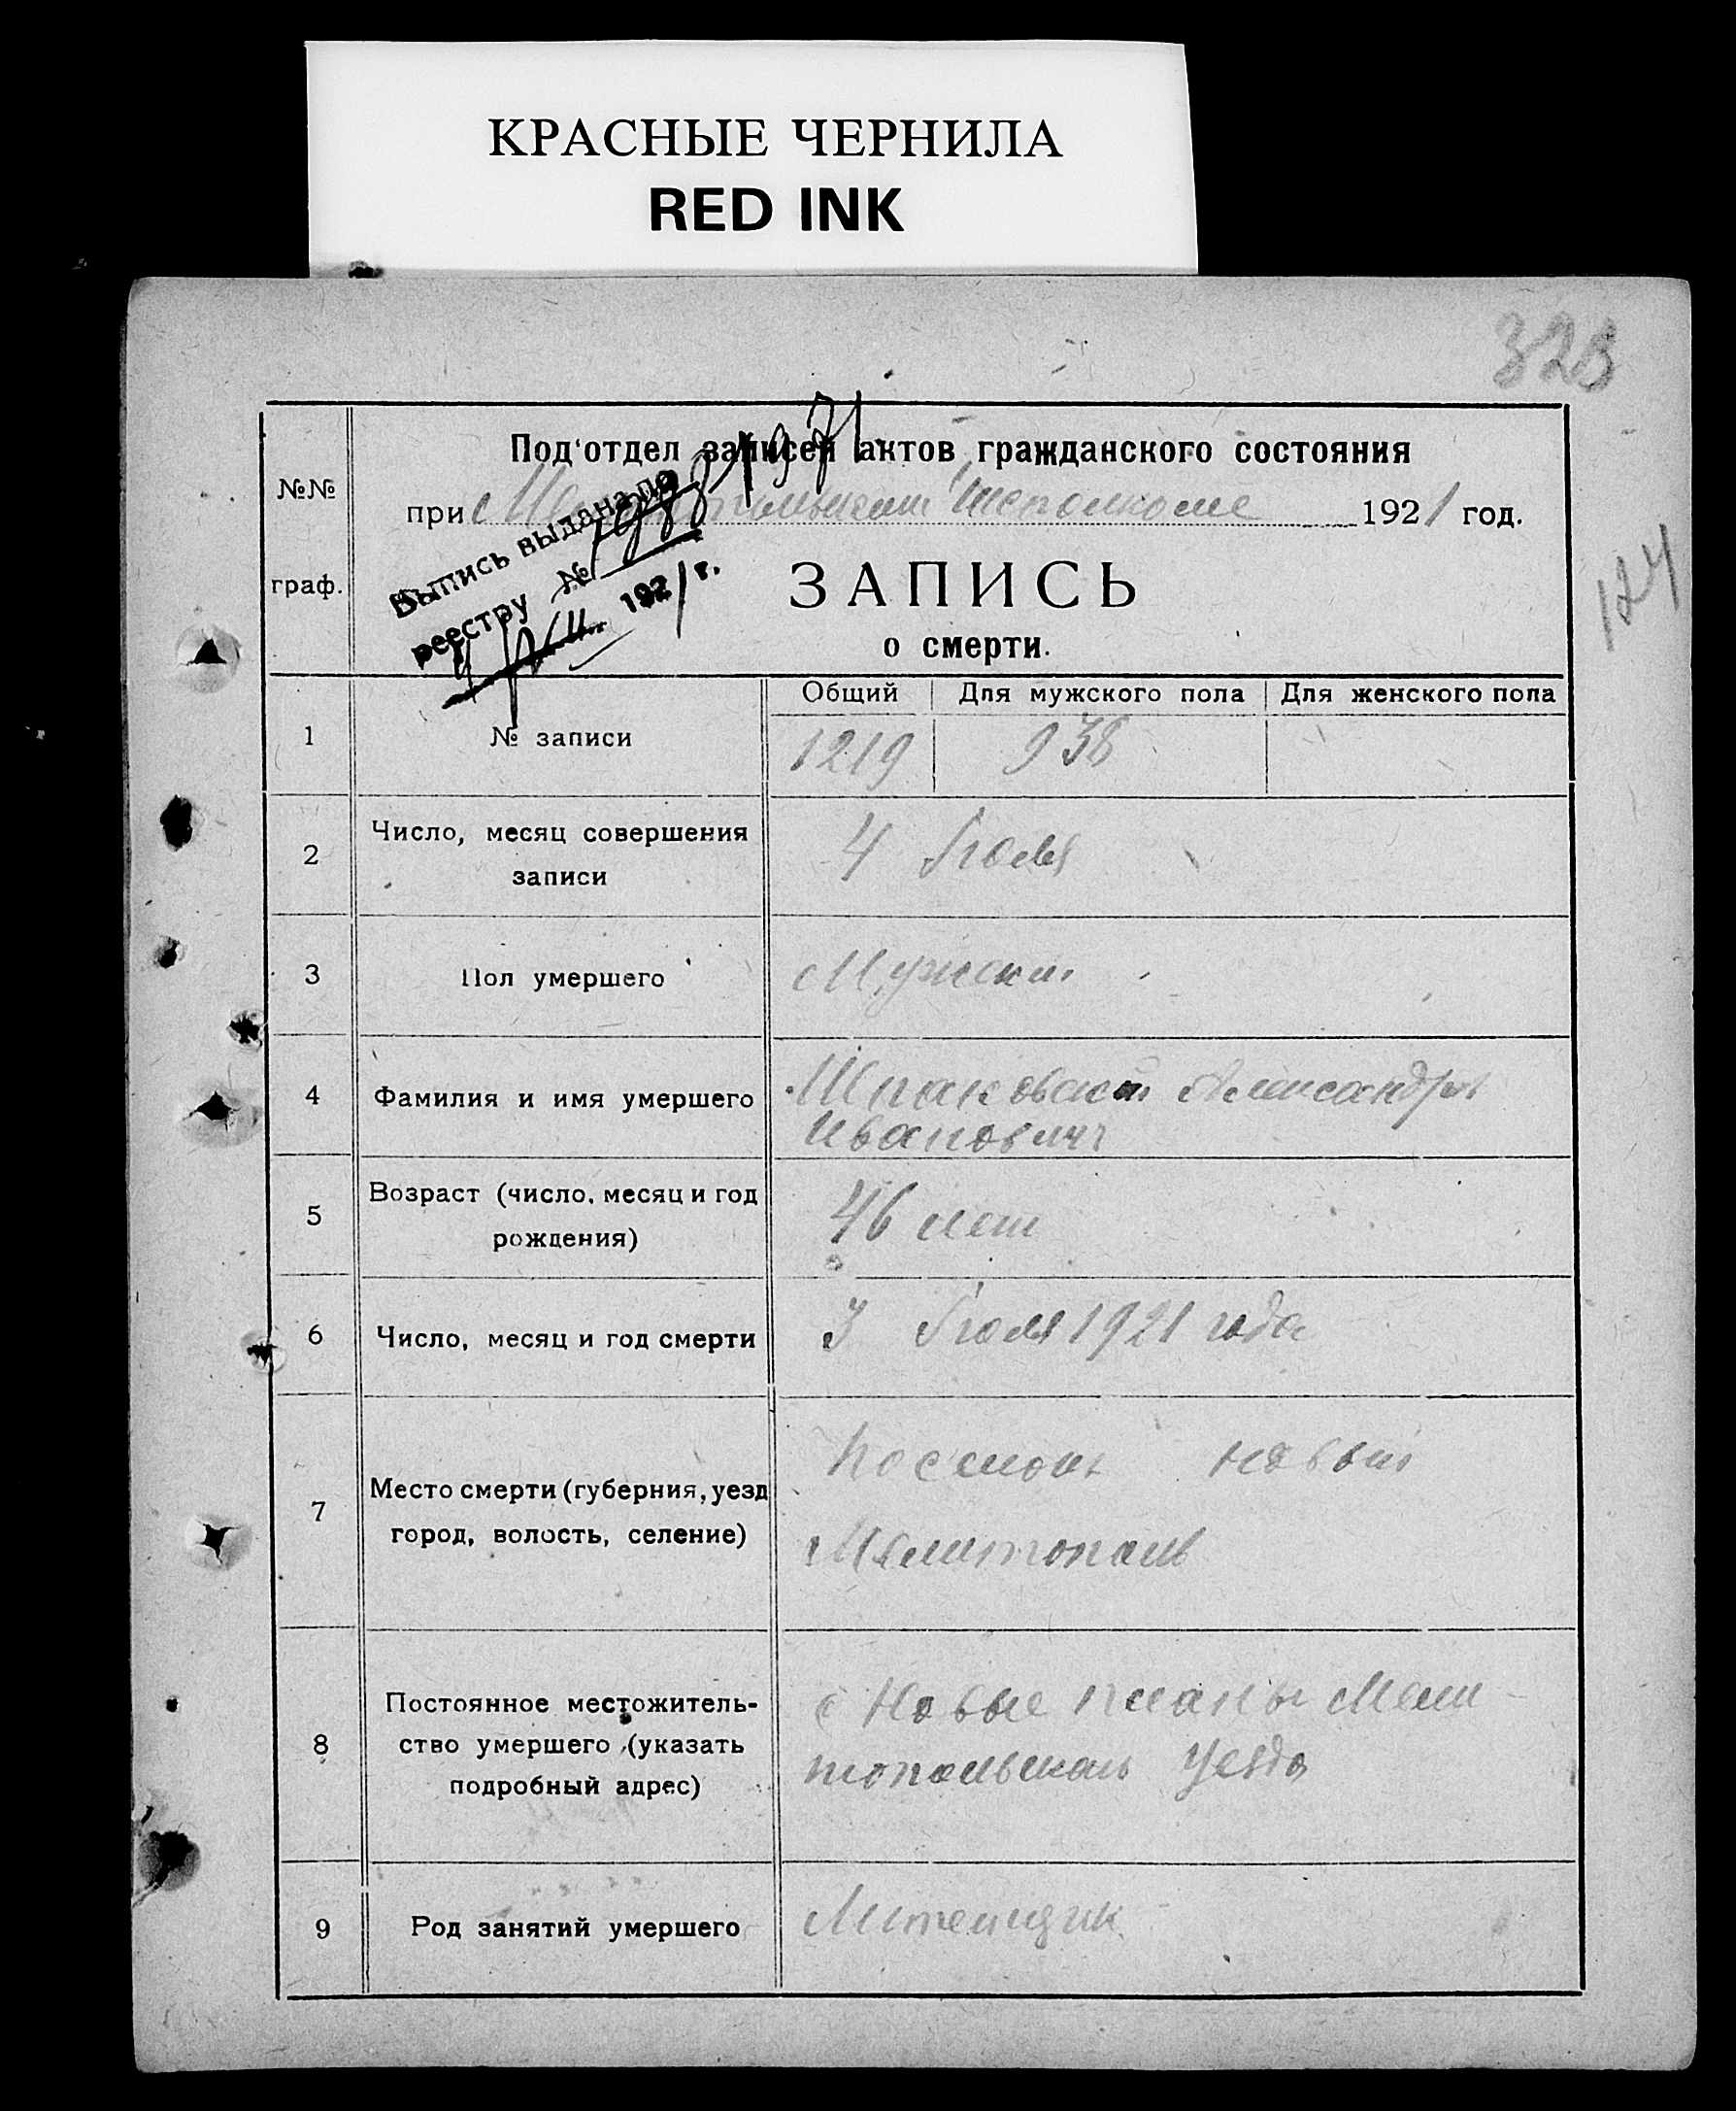 КРАСНЫЕ ЧЕРНИЛА
RED INK
328
124
№№
граф.
Под'отдел записей актов гражданского состояния
при Исполкоме 1921 год.
ЗАПИСЬ
о смерти.
Выпись выдана по
реестру №
1921 г.
Общий Для мужского пола Для женского пола
1 № записи 1219 938
2 Число, месяц совершения
записи
4 Июля
3 Пол умершего Мужской
4 Фамилия и имя умершего
Шпаковский Александр
Иванович
5 Возраст (число, месяц и год
рождения)
46 лет
6 Число, месяц и год смерти 3 Июля 1921 года
7 Место смерти (губерния, уезд
город, волость, селение)
Новый
Мелитополь
8 Постоянное местожитель-
ство умершего (указать
подробный адрес)
с Новые планы Мели
топольскаго уезда
9 Род занятий умершего